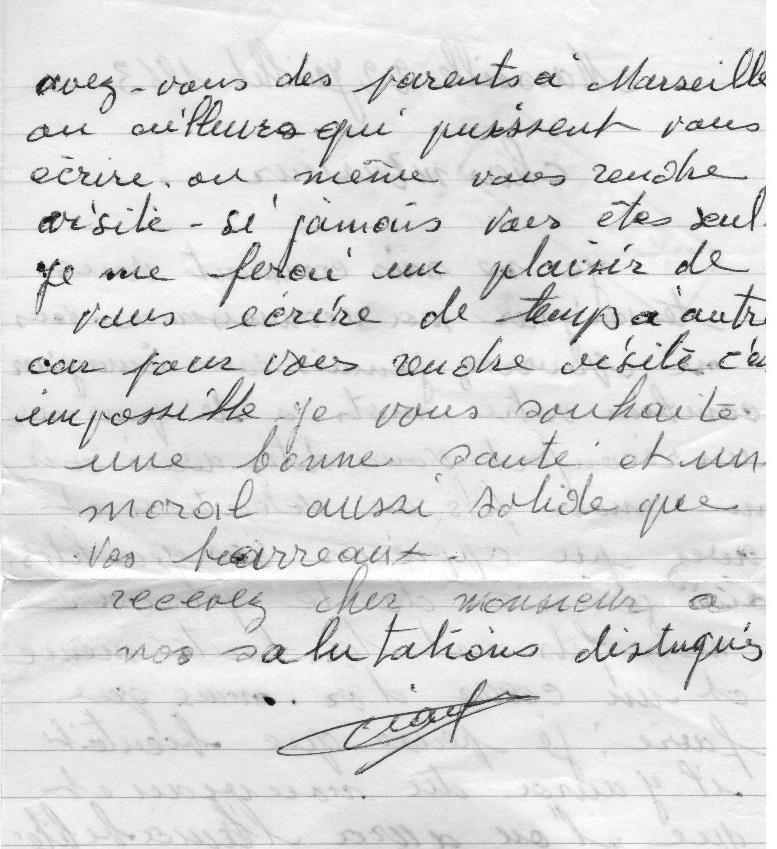 avez-vous des parents à Marseille
ou ailleurs qui puissent vous
écrire. ou même vous rendre
visite - si jamais vous êtes seul
je me ferai un plaisir de
vous écrire de temps à autre
car pour vous rendre visite c'es
impossible je vous souhaite.
une bonne santé et un
moral aussi solide que
vos barreaux.
recevez cher monsieur a
nos salutations distugués